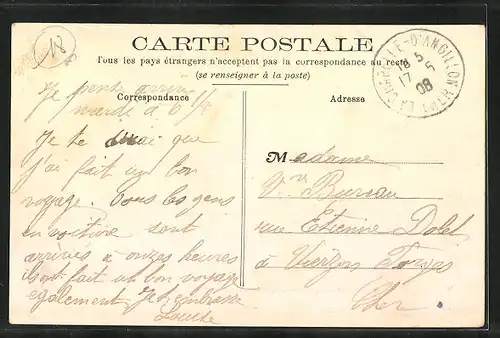 18
CARTE POSTALE
Tous les pays étrangers n'acceptent pas la correspondance au recto
(se renseigner à la poste)
LA CHAPELLE-D'ANGILLON
18 5
17 5
08
Correspondance
Adresse
Je pense arriver
mardi à 6 h
Je te dirai que
j'ai fait un bon
voyage. Tous les gens
en voiture sont
arrivés à onzes heures
ils ont fait un bon voyage
également. Je t'embrasse
Madame
Vve Bureau
rue Etienne Dolet
à Vierzon Forges
Cher.